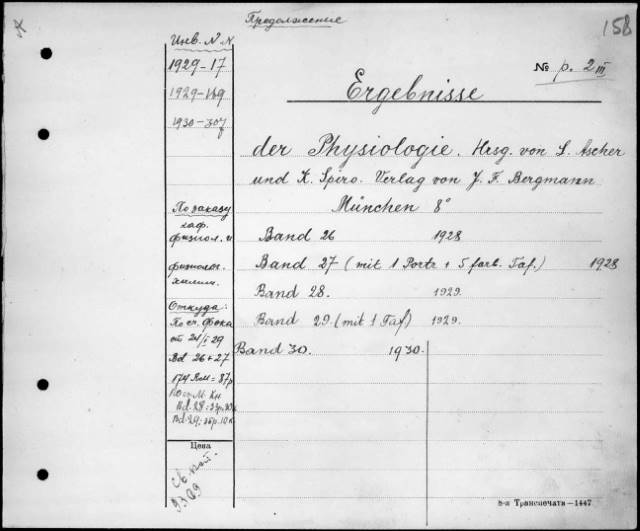 Продолжение
158
Инв. N-N
1929-17
1929-149
1930-307
№ p. 2 III
Ergebnisse
der Physiologie. Hrsg. von L. Ascher
und K. Spiro. Verlag von J. F. Bergmann
München 8°
По заказу
каф.
физиол. и
физиолог.
химии.
Band 26 1928
Band 27 (mit 1 Portr + 5 farb. Taf.) 1928
Band 28. 1929.
Band 29. (mit 1 Taf) 1929.
Band 30. 1930.
Откуда:
По сч. Фока
от 21/I 29
Bd 26+27
174 Rm = 87р
По сч. М. Кн
Bd. 28:
Bd. 29:
Цена
8-я Транспечать—1447